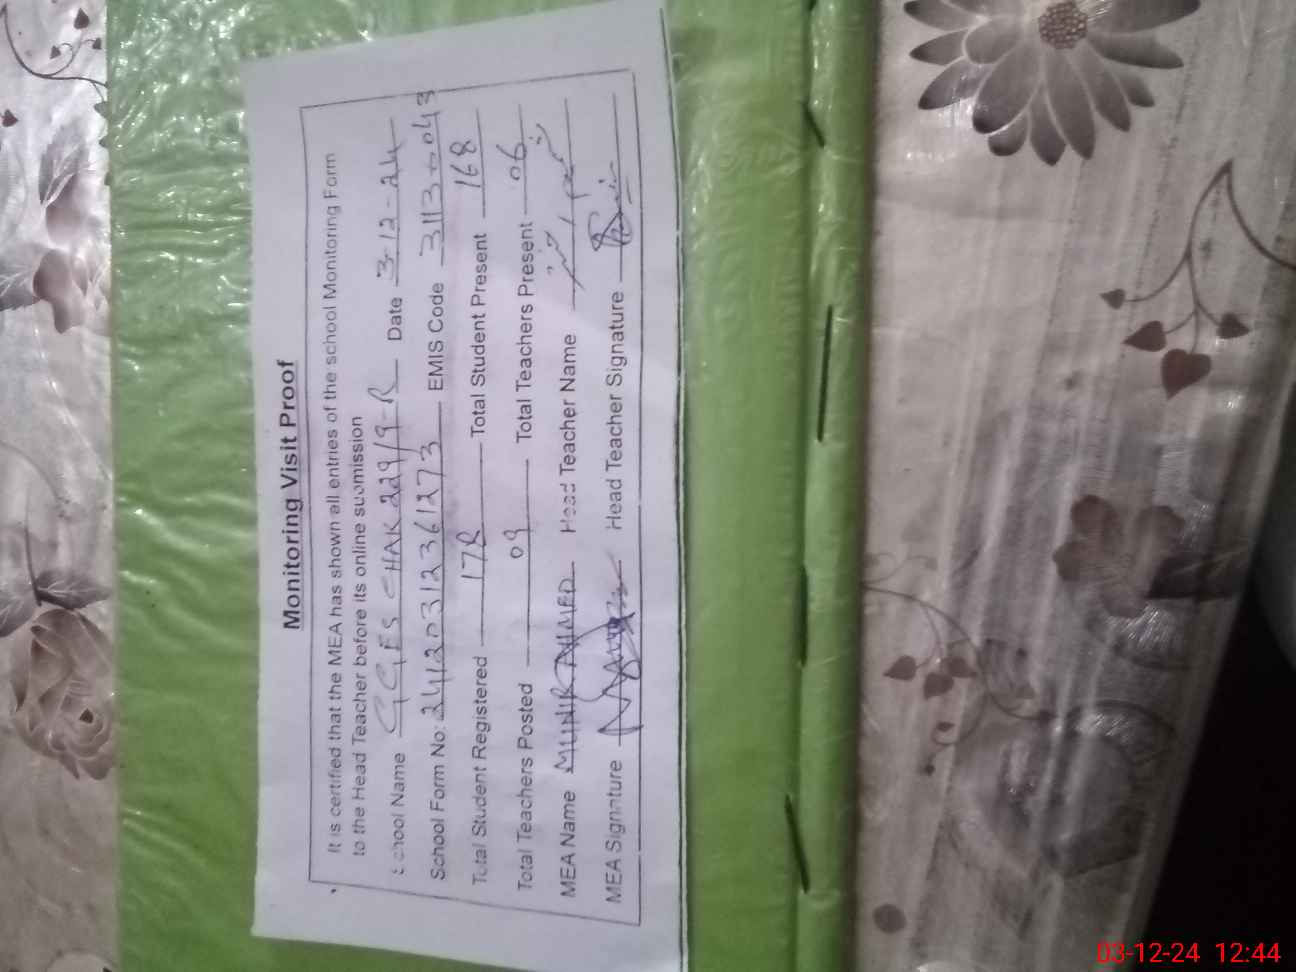 Monitoring Visit Proof
It is certified that the MEA has shown all entries of the school Monitoring Form
to the Head Teacher before its online submission
School Name GGES CHAK 229/9-R Date 3-12-24
School Form No: 24120312361273 EMIS Code 31130043
Total Student Registered 178 Total Student Present 168
Total Teachers Posted 09 Total Teachers Present 06
MEA Name MUNIR AHMED Head Teacher Name
MEA Signature Head Teacher Signature
03-12-24 12:44